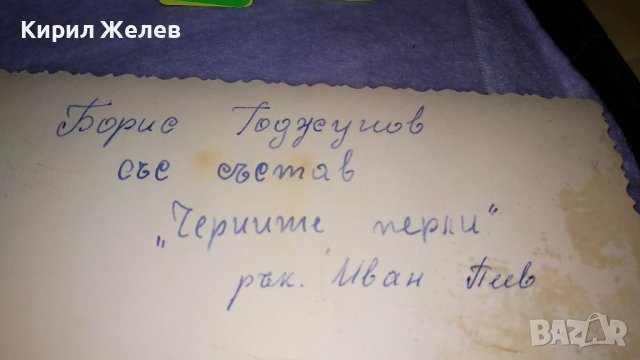 Кирил Желев
Борис Годжунов
със състав
„Черните перли“
рък. Иван Пеев
BAZAR